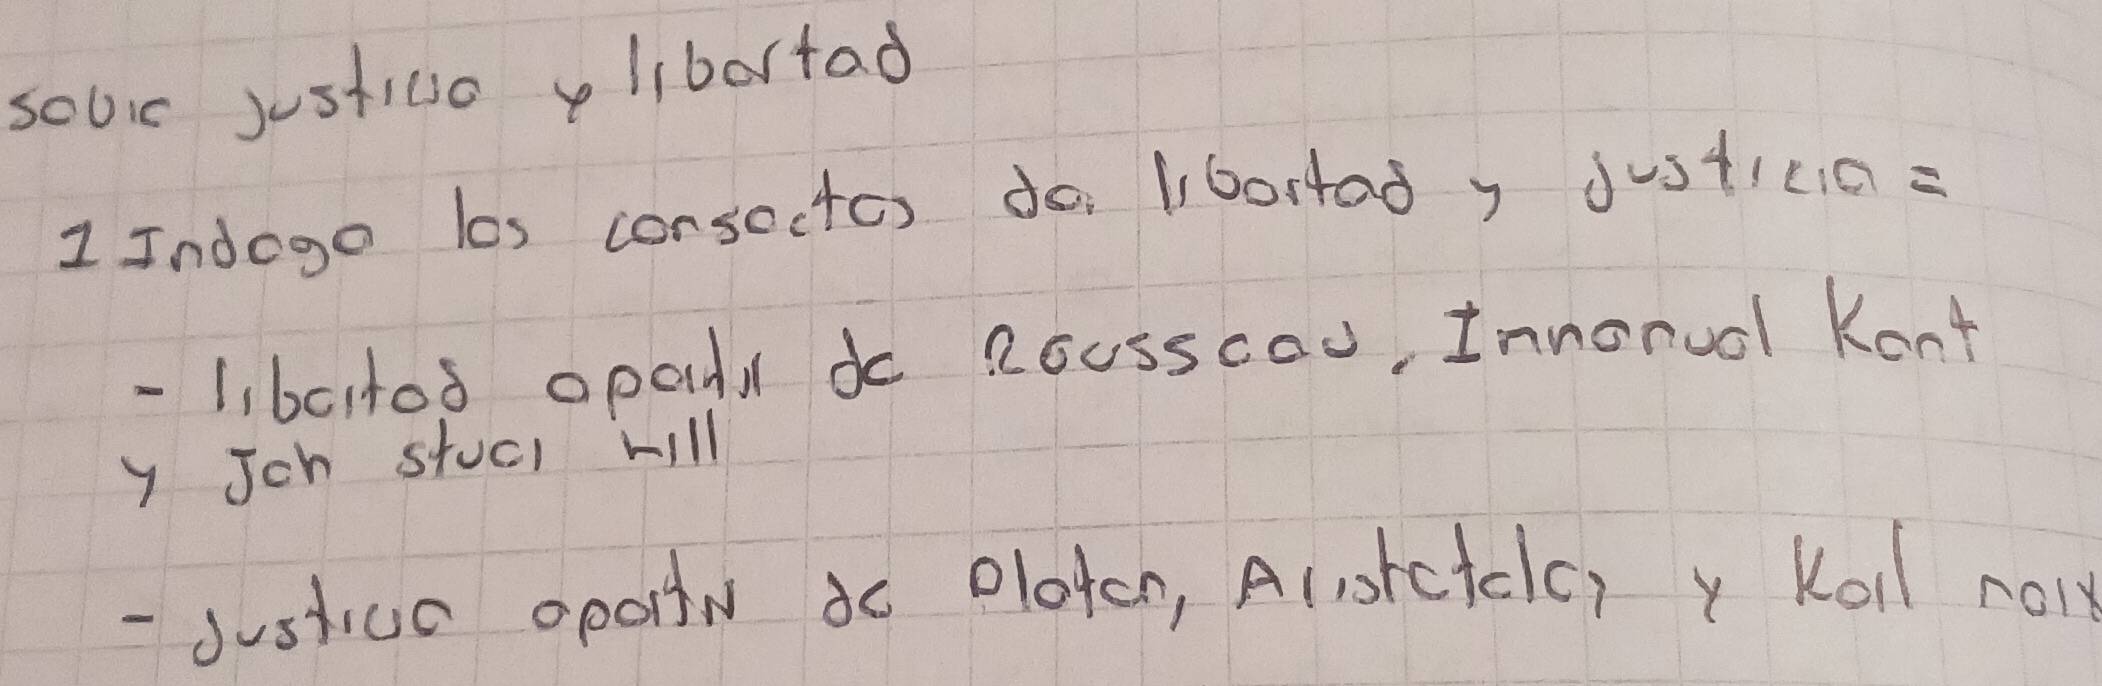 sobre justicia y libertad
1 Indago los consectos de libertad y justicia =
- libertad apartir de Rousseau, Inmanuel Kant
y Joh stuar mill
- justicia apartir de Platon, Aristoteles y Karl marx